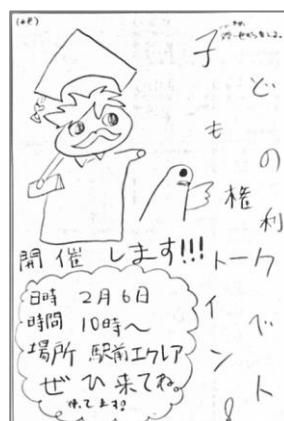 (おもて)
子どもの権利
トークイベント!
開催します!!!
日時 2月6日
時間 10時〜
場所 駅前エクレア
ぜひ来てね。
待ってます!